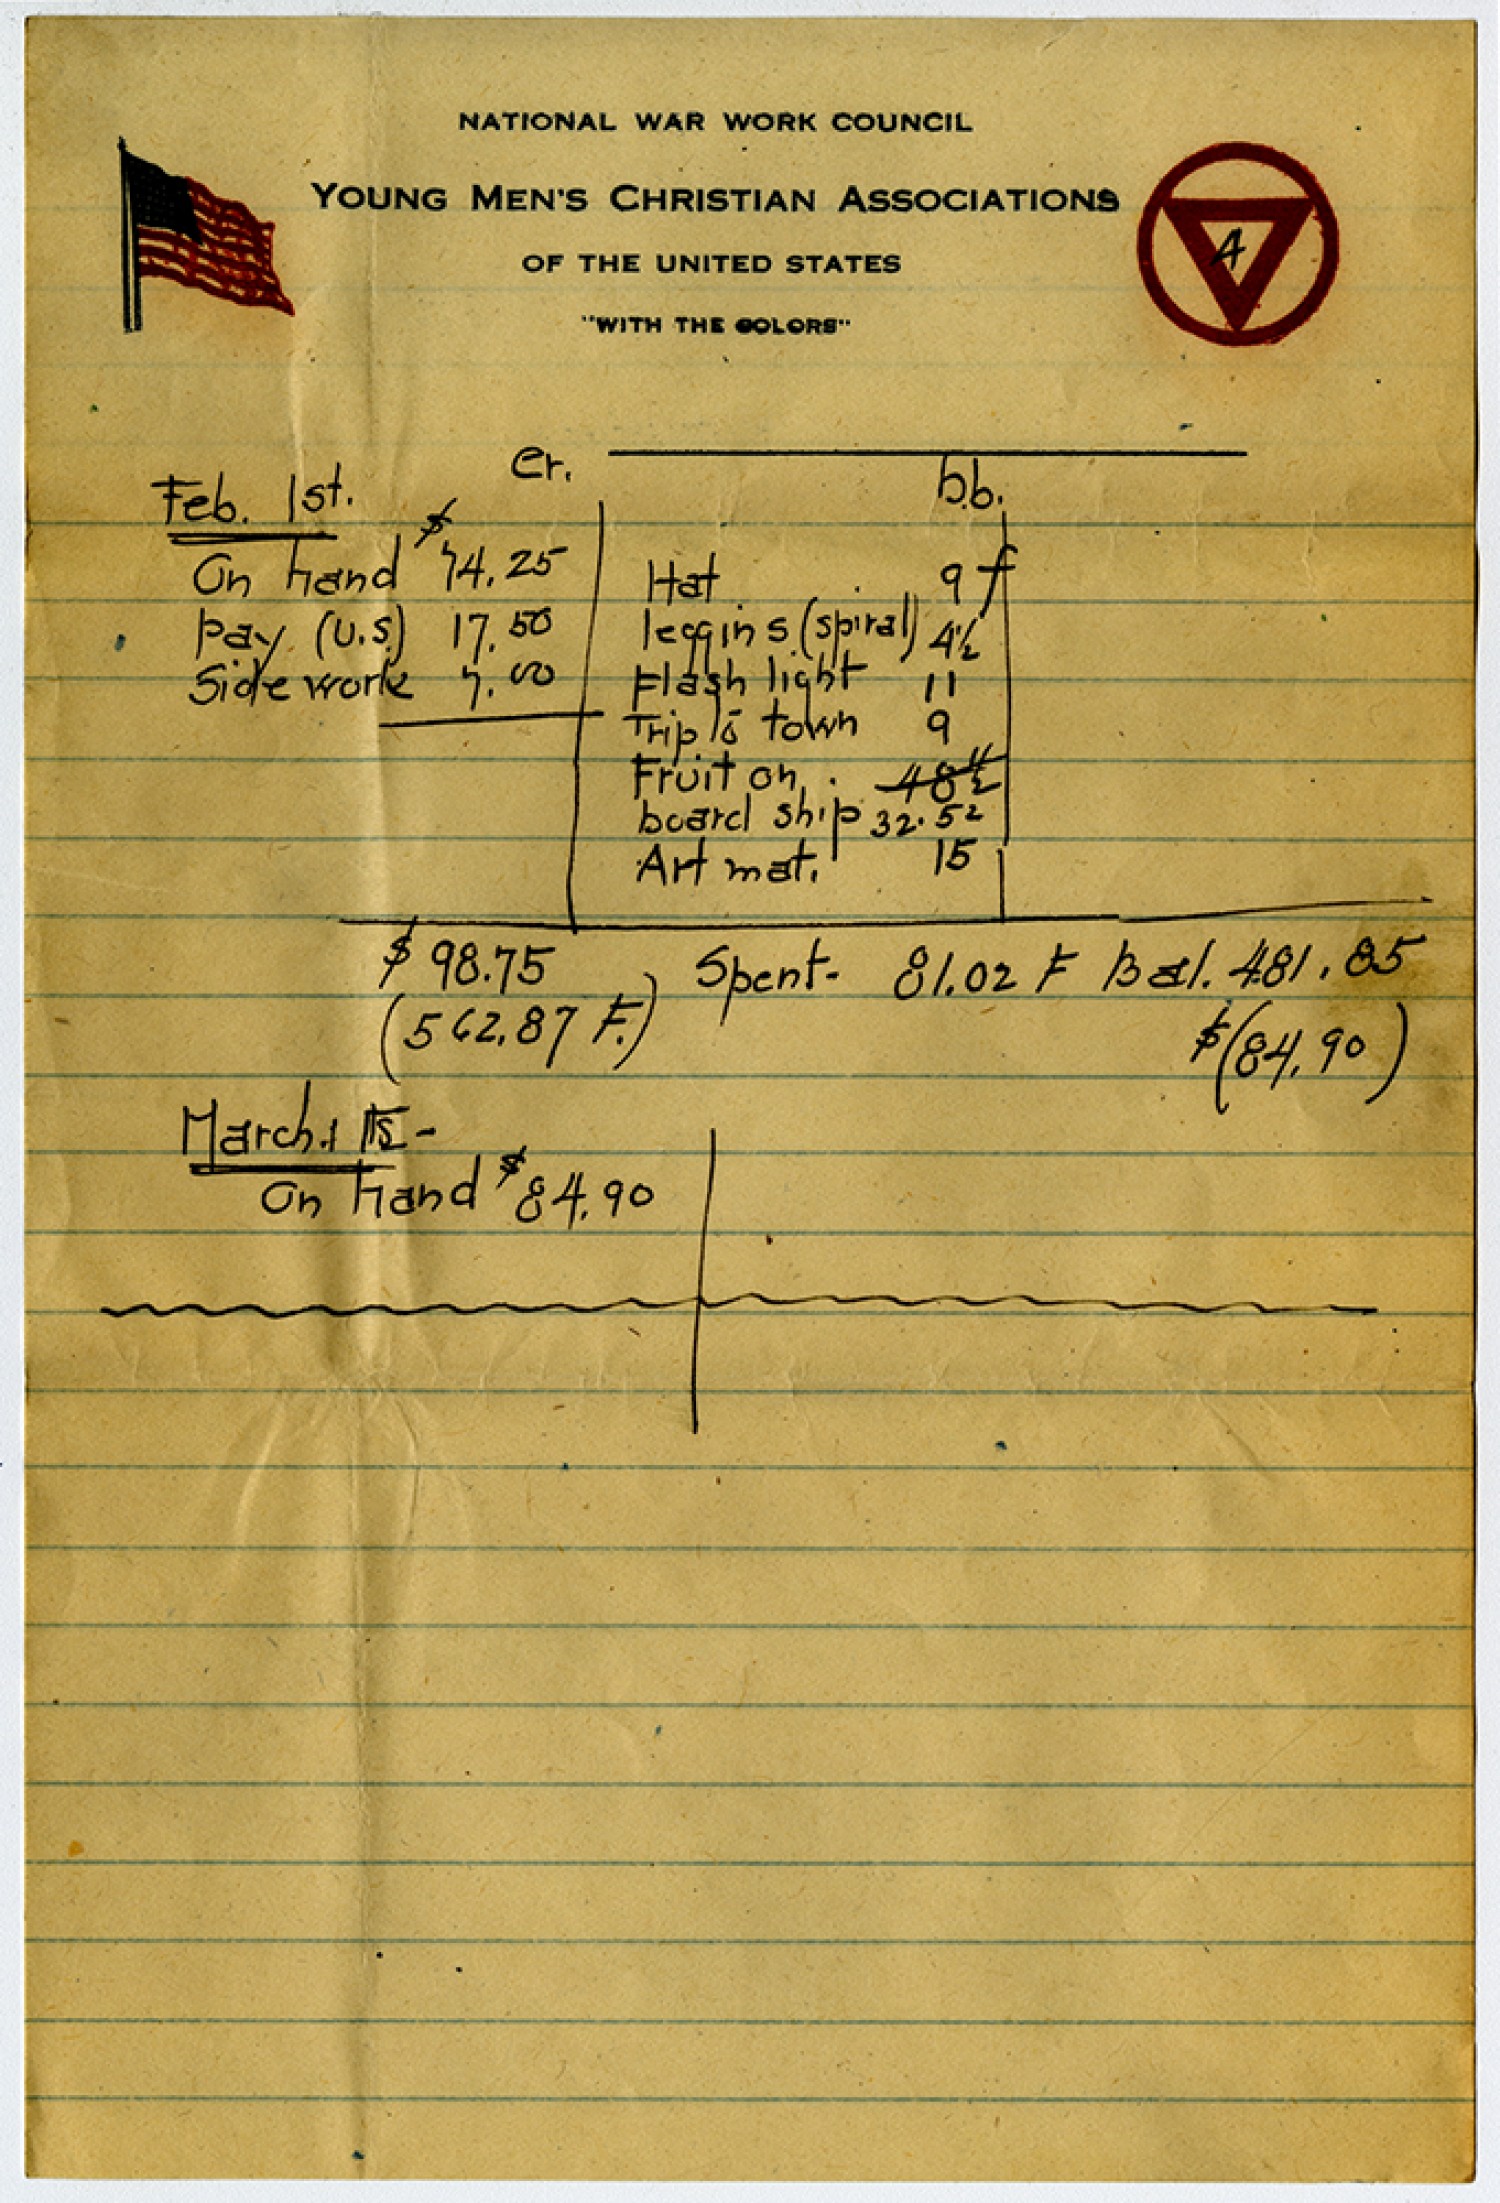 NATIONAL WAR WORK COUNCIL
YOUNG MEN'S CHRISTIAN ASSOCIATIONS
OF THE UNITED STATES
"WITH THE COLORS"
4
Feb. 1st. cr.
On hand $74.25
Pay (U.S.) 17.50
Side work 7.00
Db.
Hat 9 f
leggins (spiral) 4½
Flash light 11
Trip to town 9
Fruit on
board ship 32.52
Art mat. 15
$98.75 Spent- 81.02 F Bal. 481.85
(562.87 F.) $(84.90)
March.1
On hand $84.90